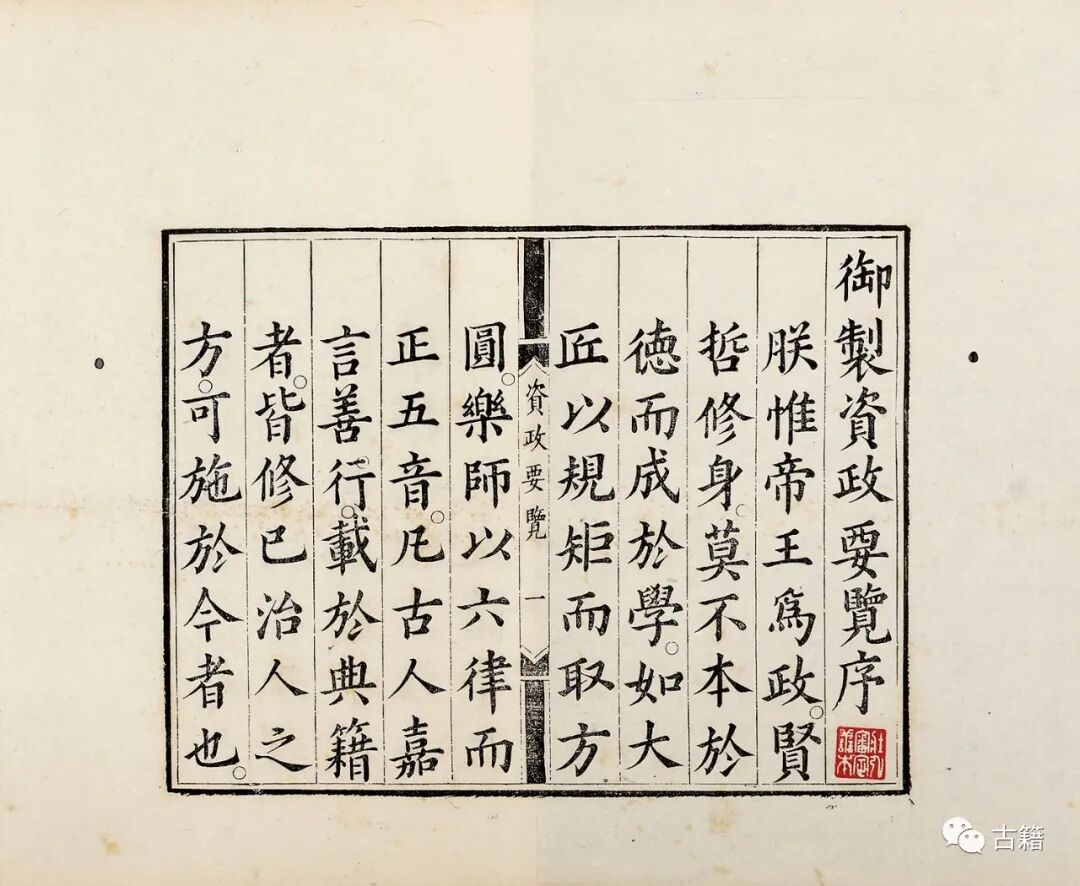 御製資政要覽序
朕惟帝王爲政。賢
哲修身。莫不本於
德而成於學。如大
匠以規矩而取方
資政要覽 一
圓。樂師以六律而
正五音。凡古人嘉
言善行。載於典籍
者。皆修己治人之
方。可施於今者也。
古籍